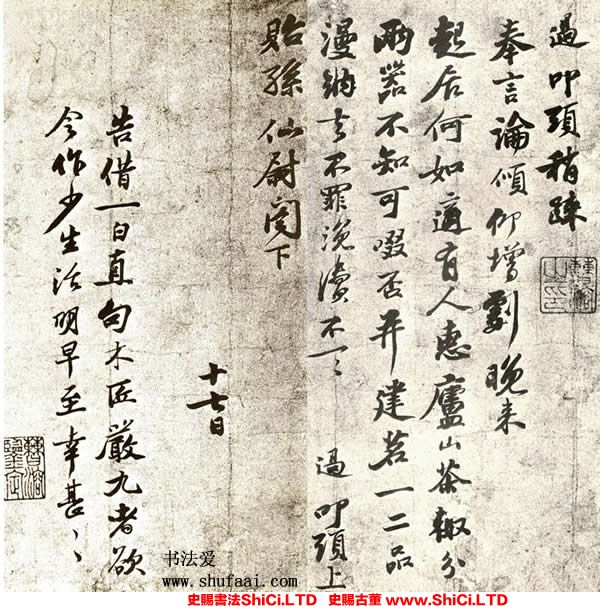 過叩頭稍疎
奉言論傾仰增劇晚来
起居何如適有人惠廬山茶輙分
兩器不知可啜否并建茗一二品
漫納去不罪浼瀆不一〻 過叩頭上
貽孫仙尉閣下
十七日
告借一白直句木匠嚴九者欲
令作少生活明早至幸甚〻
书法爱
www.shufaai.com
史賜書法ShiCi.LTD 史賜古董 www.ShiCi.LTD